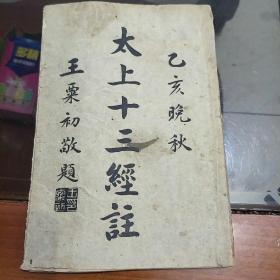 乙亥晚秋
太上十三經註
王粟初敬題